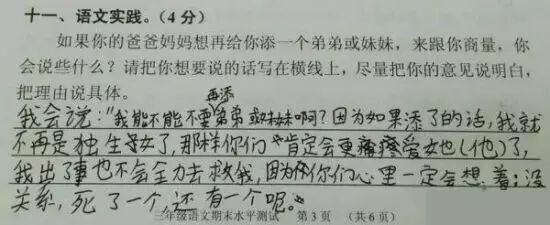 十一、语文实践。(4分)
如果你的爸爸妈妈想再给你添一个弟弟或妹妹，来跟你商量，你
会说些什么？请把你想要说的话写在横线上，尽量把你的意见说明白，
把理由说具体。
我会说："我能不能不要再添弟弟或妹妹啊？因为如果添了的话，我就
不再是独生子女了，那样你们肯定会更疼爱她(他)了，
我出了事也不会全力去救我，因为你们心里一定会想着：没
关系，死了一个，还有一个呢。"
三年级语文期末水平测试 第3页 (共6页)